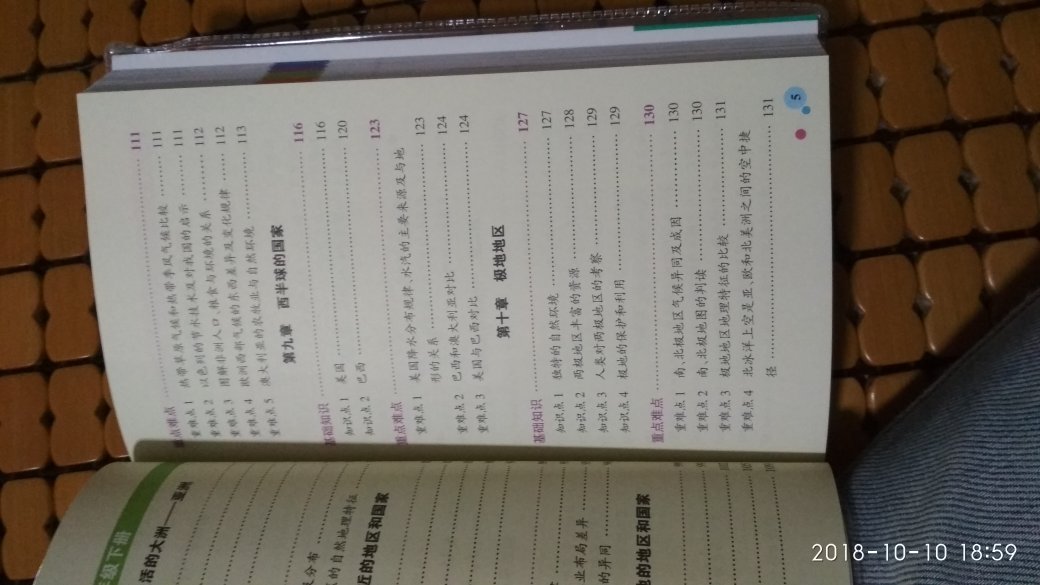 重点难点 111
重难点 1 热带草原气候和热带季风气候比较 111
重难点 2 以色列的节水技术及对我国的启示 111
重难点 3 图解非洲人口、粮食与环境的关系 112
重难点 4 欧洲西部气候的东西差异及变化规律 112
重难点 5 澳大利亚的农牧业与自然环境 113
第九章 西半球的国家
基础知识 116
知识点 1 美国 116
知识点 2 巴西 120
重点难点 123
重难点 1 美国降水分布规律、水汽的主要来源及与地
形的关系 123
重难点 2 巴西和澳大利亚对比 124
重难点 3 美国与巴西对比 124
第十章 极地地区
基础知识 127
知识点 1 独特的自然环境 127
知识点 2 两极地区丰富的资源 128
知识点 3 人类对两极地区的考察 129
知识点 4 极地的保护和利用 129
重点难点 130
重难点 1 南、北极地区气候异同及成因 130
重难点 2 南、北极地图的判读 130
重难点 3 极地地区地理特征的比较 131
重难点 4 北冰洋上空是亚、欧和北美洲之间的空中捷
径 131
5
级下册
活的大洲——亚洲
分布
的自然地理特征
近的地区和国家
业布局差异
的异同
他的地区和国家
2018-10-10 18:59